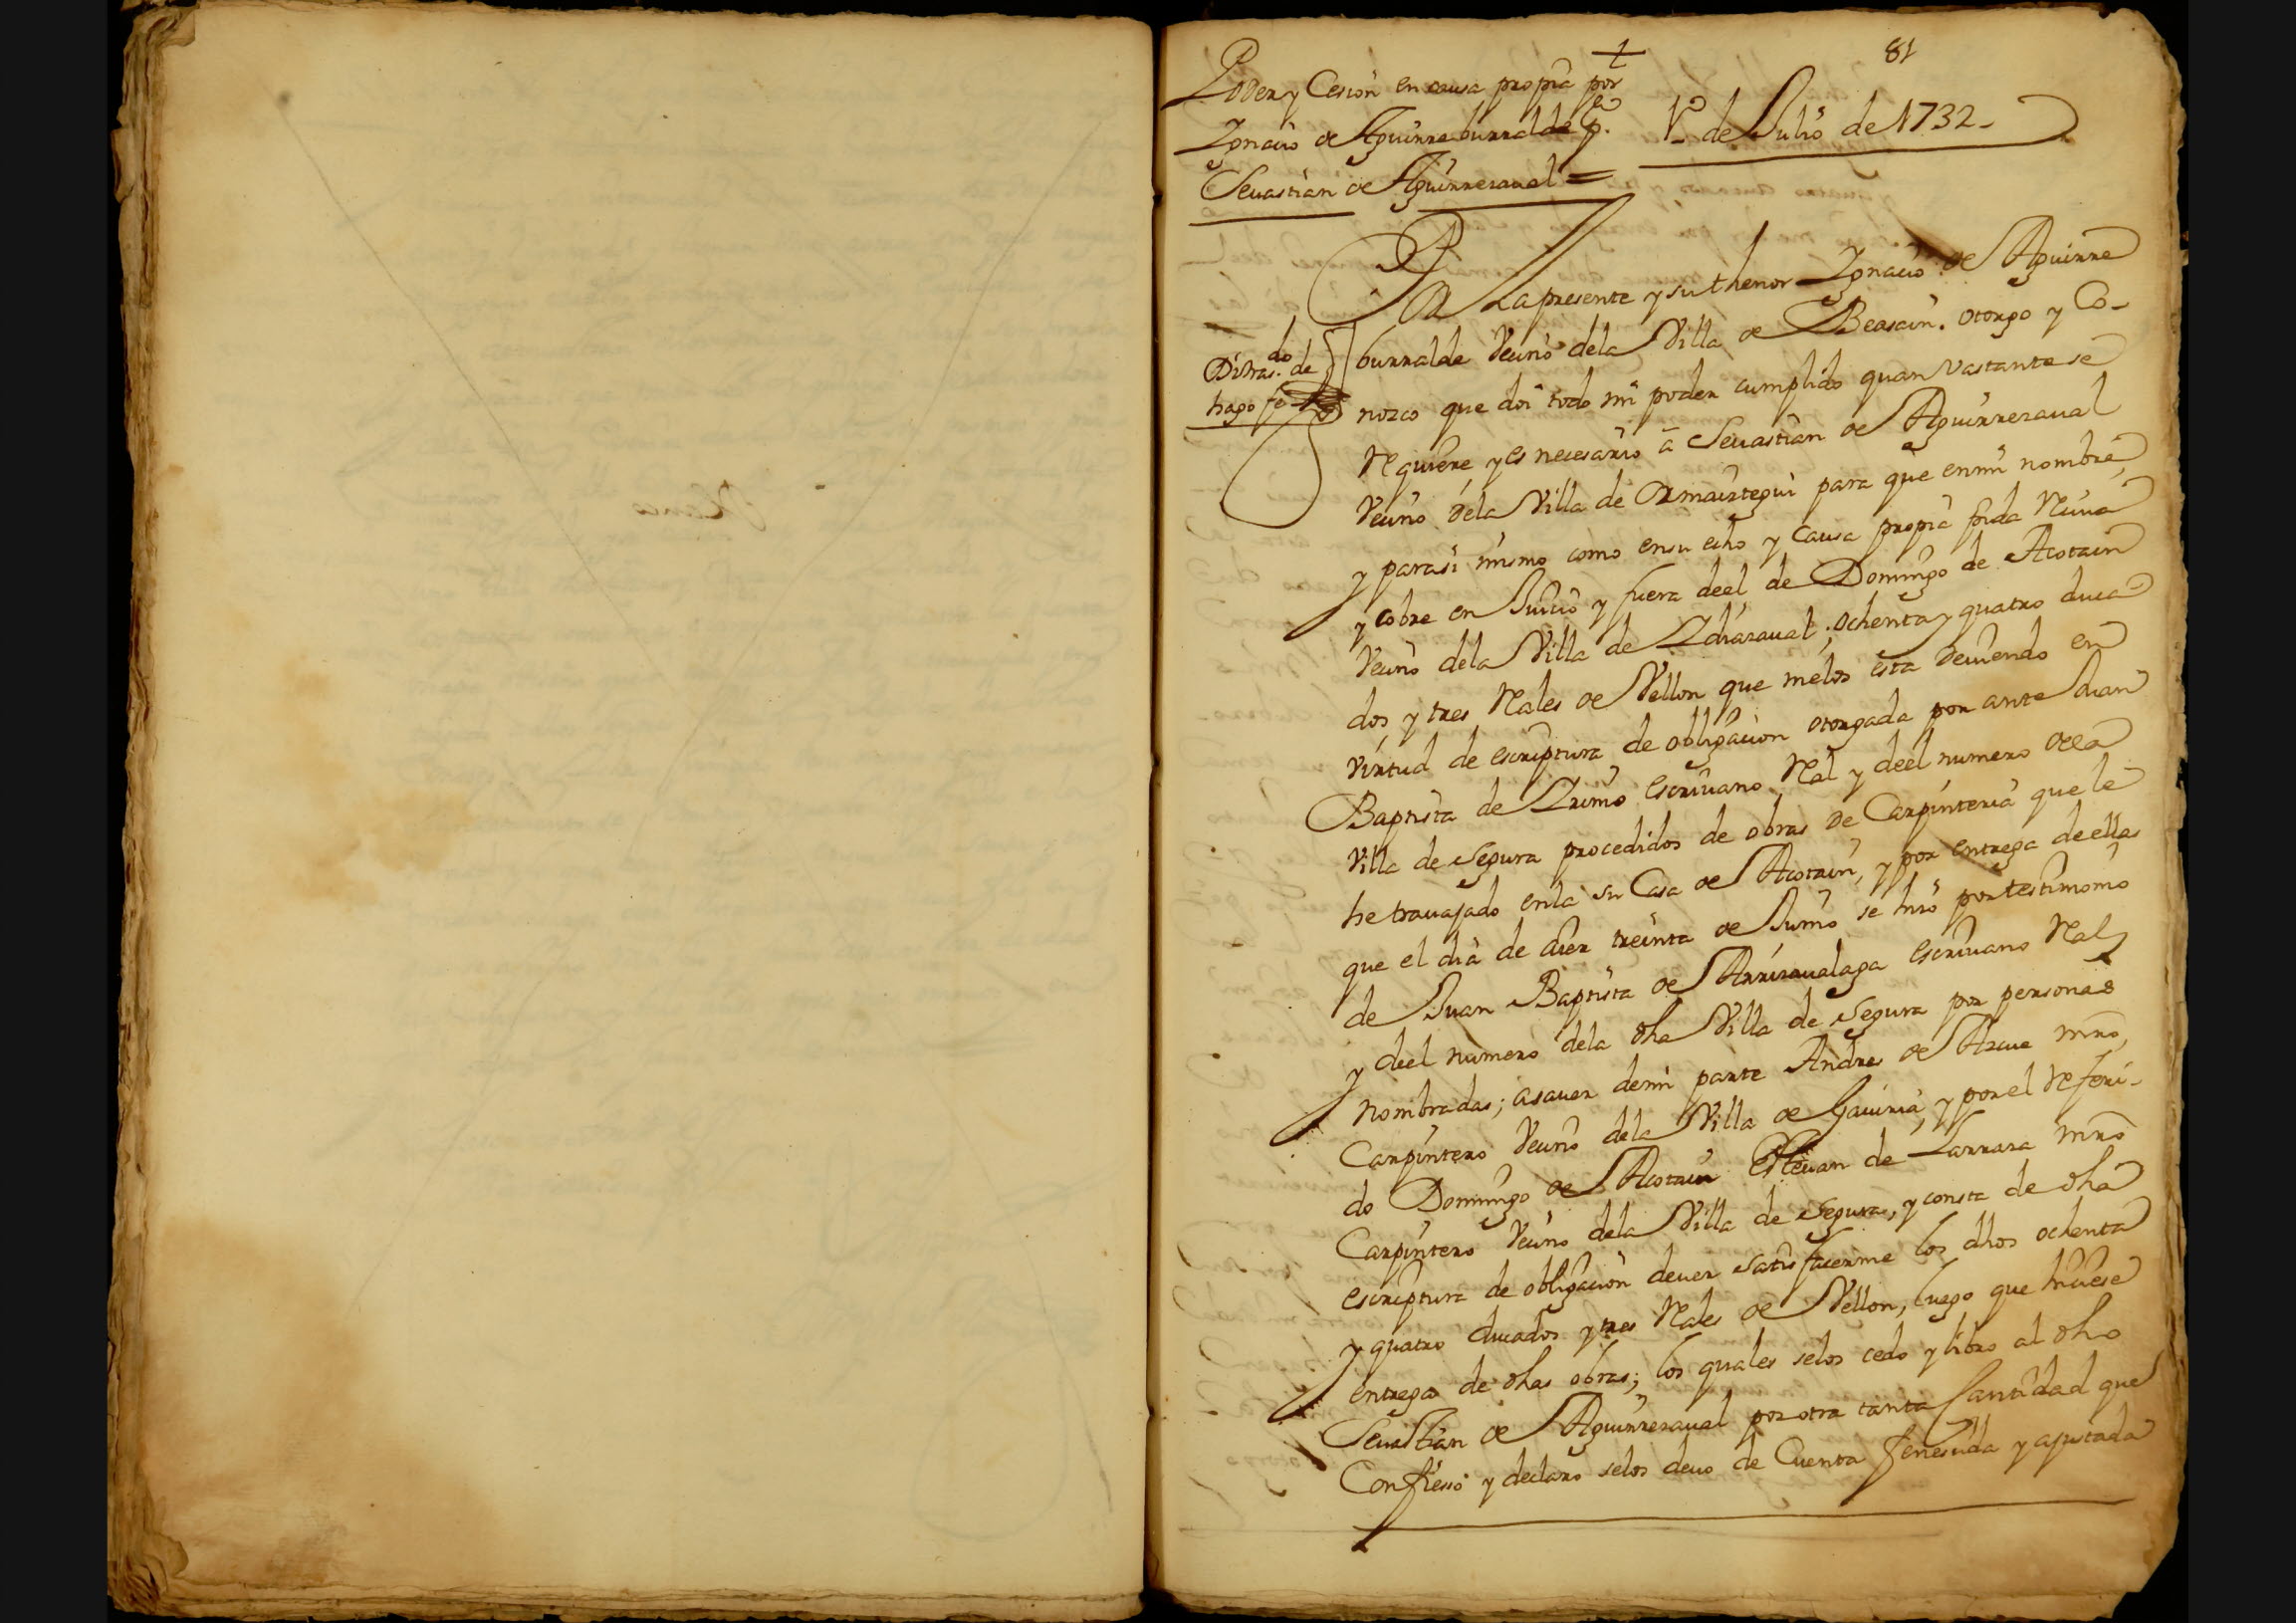 81
Poder y Cesion en causa propia por
Ygnacio de Aguirreburralde p.ª
Sevastian de Aguirrezaval =
1º de Julio de 1732.
Por la presente y su thenor Ygnacio de Aguirre
burralde Vecino dela Villa de Beasain. otorgo y Co-
nozco que doi todo mi poder cumplido quan vastante se
Requiere, y es necesario à Sevastian de Aguirrezaval
Vecino dela Villa de Ormaiztegui para que en mi nombre,
y parasi mismo como en su echo y Causa propia pida Reciva
y cobre en Juicio y fuera deel de Domingo de Acotain
Vecino dela Villa de Ydiazaval; ochenta y quatro duca
dos, y tres Rales de Vellon que melos esta deviendo en
virtud de escriptura de obligacion otorgada por ante Juan
Baptista de Urmo escrivano Ral y deel numero dela
Villa de Segura procedidos de obras de Carpinteria que le
he travajado enla su Casa de Acotain, y por entrega de ellas
que el dia de aier treinta de Junio se hizo por testimonio
de Juan Baptista de Arrizavalaga escrivano Ral
y deel numero dela dha Villa de Segura por personas
nombradas; asaver demi parte Andres de Azcue mro,
Carpintero Vecino dela Villa de Gaviria, y por el referi-
do Domingo de Acotain Estevan de Larraza mro
Carpintero Vecino dela Villa de Segura, y consta de dha
escriptura de obligacion dever satisfacerme los dhos ochenta
y quatro ducados y tres Rales de Vellon, luego que hiciese
entrega de dhas obras; los quales selos cedo y libro al dho
Sevastian de Aguirrezaval por otra tanta Cantidad que
Confieso y declaro selos devo de Cuenta fenesida y ajustada
do
Distras. de
hago fe